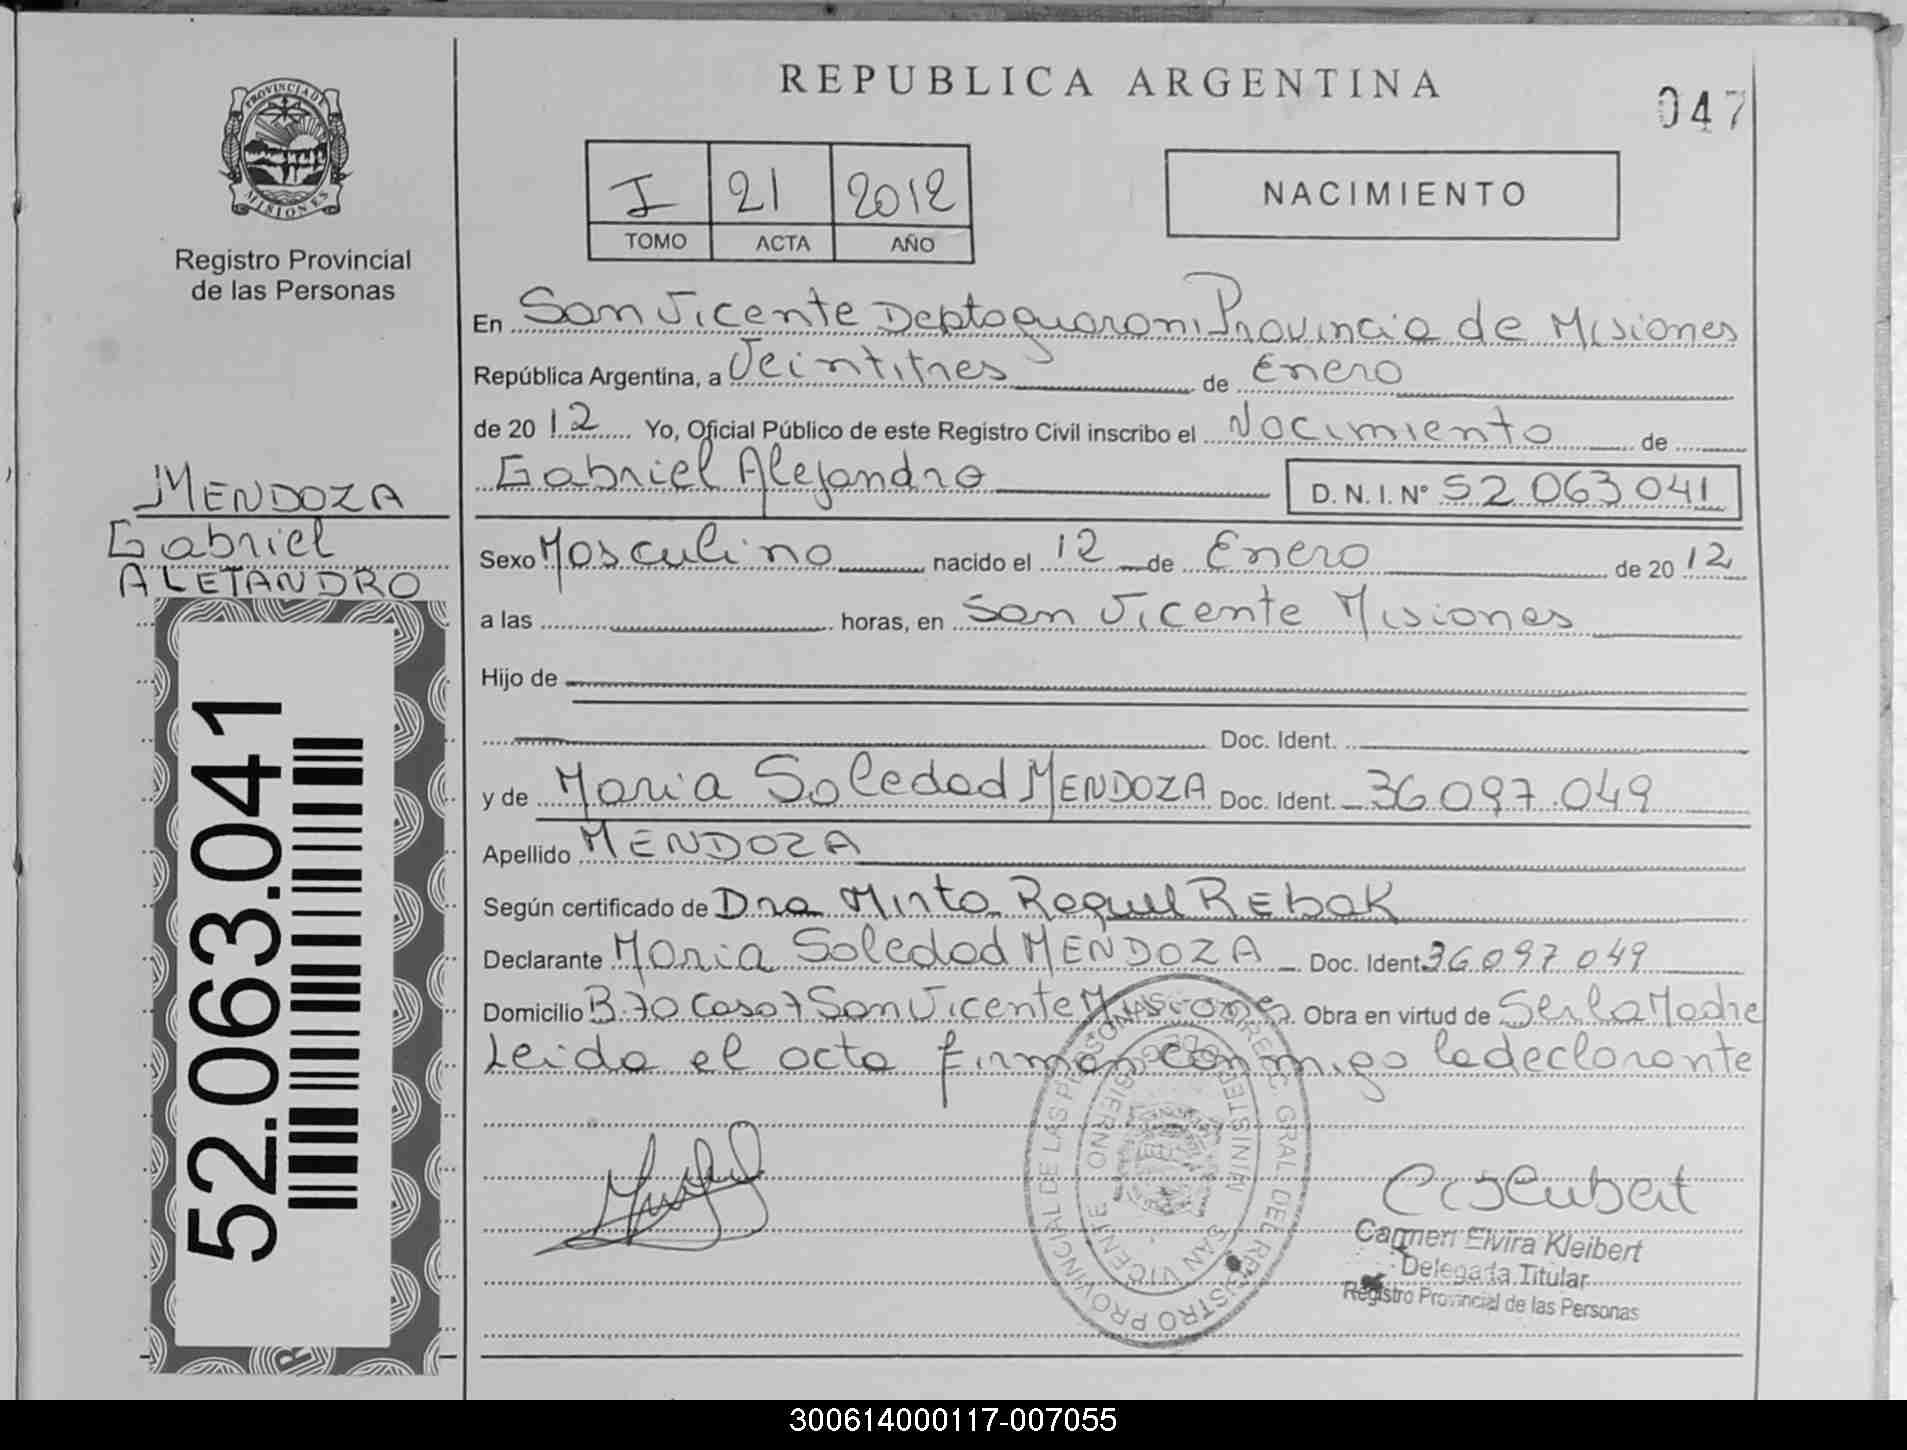 REPUBLICA ARGENTINA
047
PROVINCIA DE
MISIONES
Registro Provincial
de las Personas
I 21 2012
TOMO ACTA AÑO
NACIMIENTO
En San Vicente Depto guarani Provincia de Misiones
República Argentina, a Veintitres de Enero
de 2012 Yo, Oficial Público de este Registro Civil inscribo el Nacimiento de
Gabriel Alejandro D.N.I. Nº 52 063 041
MENDOZA
Gabriel
ALEJANDRO
Sexo Masculino nacido el 12 de Enero de 2012
a las horas, en San Vicente Misiones
Hijo de
Doc. Ident.
y de Maria Soledad MENDOZA Doc. Ident. 36 097.049
Apellido MENDOZA
Según certificado de Dra Mirta Raquel REbak
Declarante Maria Soledad MENDOZA Doc. Ident 36 097 049
Domicilio B.70 Casa 7 San Vicente Misiones Obra en virtud de Ser la Madre
Leida el acta firman conmigo la declarante
52.063.041
REGISTRO PROVINCIAL DE LAS PERSONAS
SAN VICENTE
Carmen Elvira Kleibert
Delegada Titular
Registro Provincial de las Personas
300614000117-007055